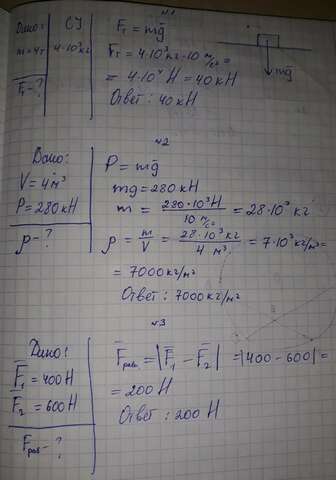 №1
Дано: СИ
m=4т 4·10³кг
F̅т-?
F̅т = mg̅
Fт = 4·10³кг·10 м/с² =
= 4·10⁴ Н = 40кН
Ответ: 40кН
mg̅
№2
Дано:
V = 4м³
P = 280кН
ρ-?
P = mg̅
mg = 280кН
m = 280·10³Н / 10 м/с² = 28·10³ кг
ρ = m/V = 28·10³ кг / 4 м³ = 7·10³ кг/м³ =
= 7000кг/м³
Ответ: 7000кг/м³
№3
Дано:
F̅₁ = 400Н
F̅₂ = 600Н
Fрав-?
F̅равн = |F̅₁ - F̅₂| = |400-600| =
= 200Н
Ответ: 200Н